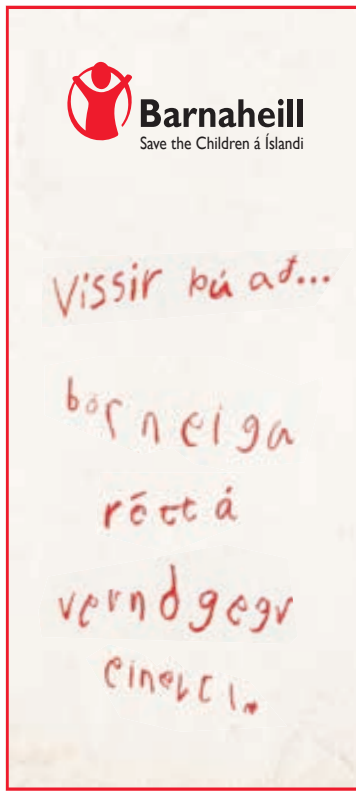 Barnaheill
Save the Children á Íslandi
Vissir þú að...
börn eiga
rétt á
vernd gegn
einelti.